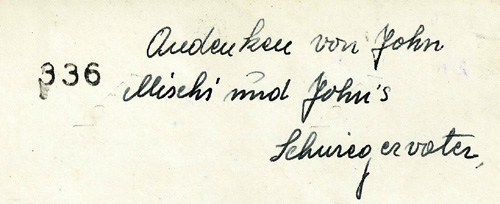 Andenken von John
336
Mischi und John's
Schwiegervater,